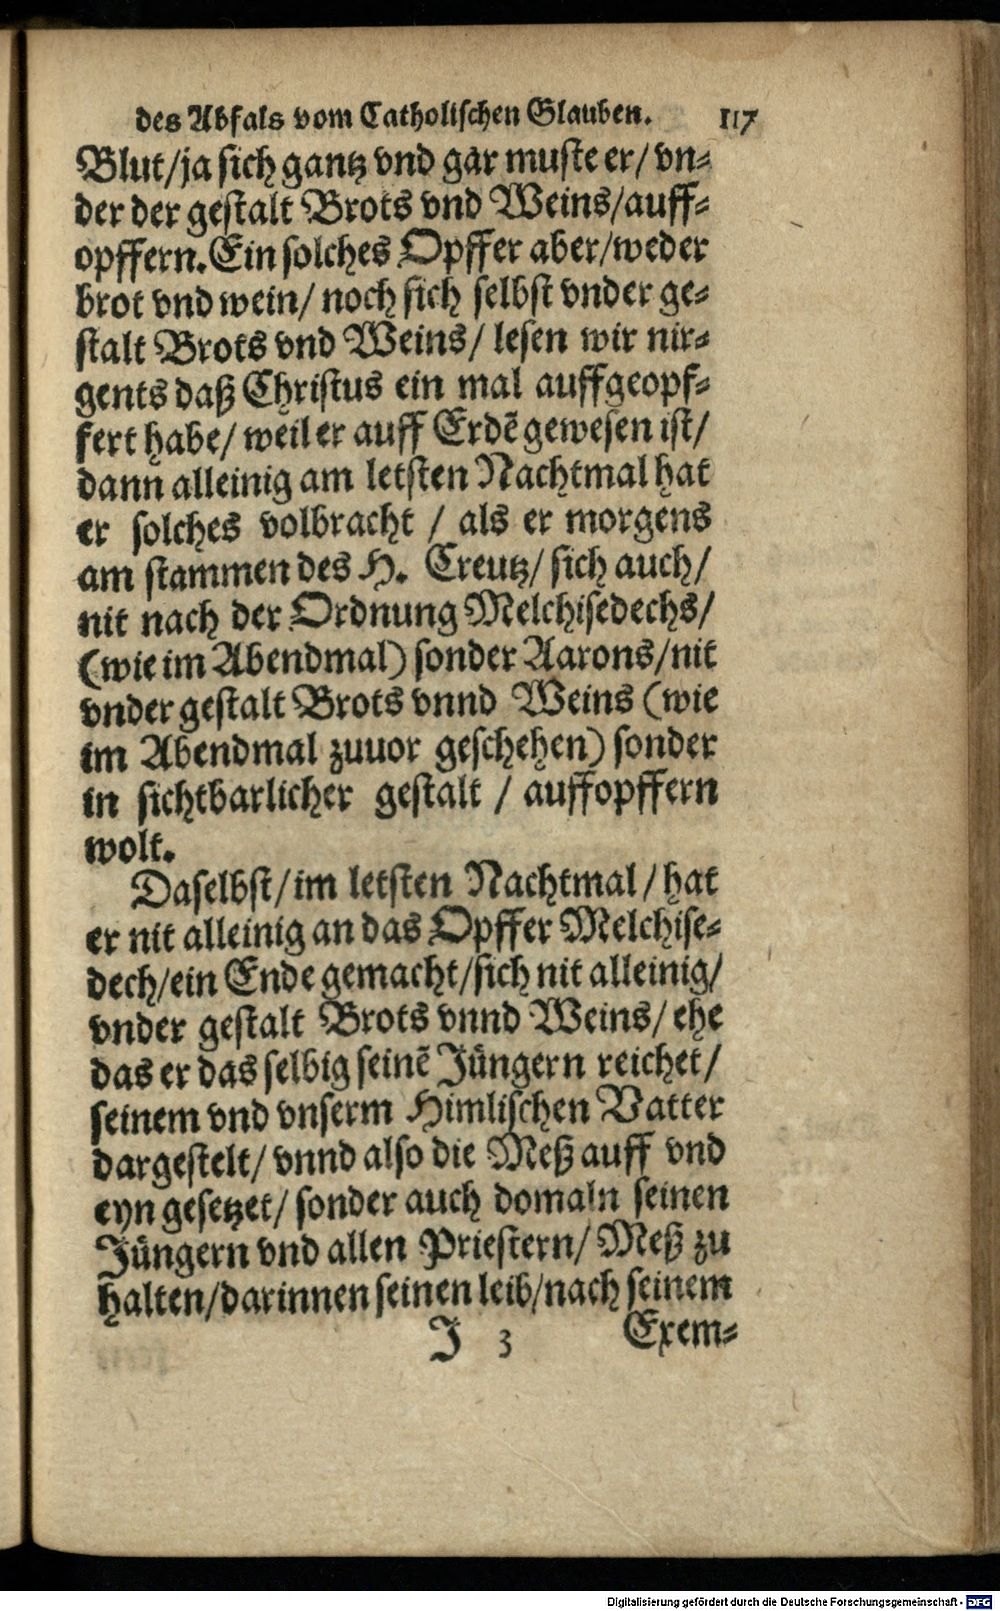 des Abfals vom Catholischen Glauben. 117
Blut/ja sich gantz vnd gar muste er/ vn⸗
der der gestalt Brots vnd Weins/auff⸗
opffern. Ein solches Opffer aber/weder
brot vnd wein/ noch sich selbst vnder ge⸗
stalt Brots vnd Weins/ lesen wir nir⸗
gents daß Christus ein mal auffgeopf⸗
fert habe/ weil er auff Erdẽ gewesen ist/
dann alleinig am letsten Nachtmal hat
er solches volbracht / als er morgens
am stammen des H. Creutz/ sich auch/
nit nach der Ordnung Melchisedechs/
(wie im Abendmal) sonder Aarons/nit
vnder gestalt Brots vnnd Weins (wie
im Abendmal zuuor geschehen) sonder
in sichtbarlicher gestalt / auffopffern
wolt.
Daselbst/im letsten Nachtmal/hat
er nit alleinig an das Opffer Melchise⸗
dech/ein Ende gemacht/sich nit alleinig/
vnder gestalt Brots vnnd Weins/ ehe
das er das selbig seinẽ Jüngern reichet/
seinem vnd vnserm Himlischen Vatter
dargestelt/ vnnd also die Meß auff vnd
eyn gesetzet/ sonder auch domaln seinen
Jüngern vnd allen Priestern/ Meß zu
halten/darinnen seinen leib/nach seinem
J 3 Exem⸗
Digitalisierung gefördert durch die Deutsche Forschungsgemeinschaft - DFG